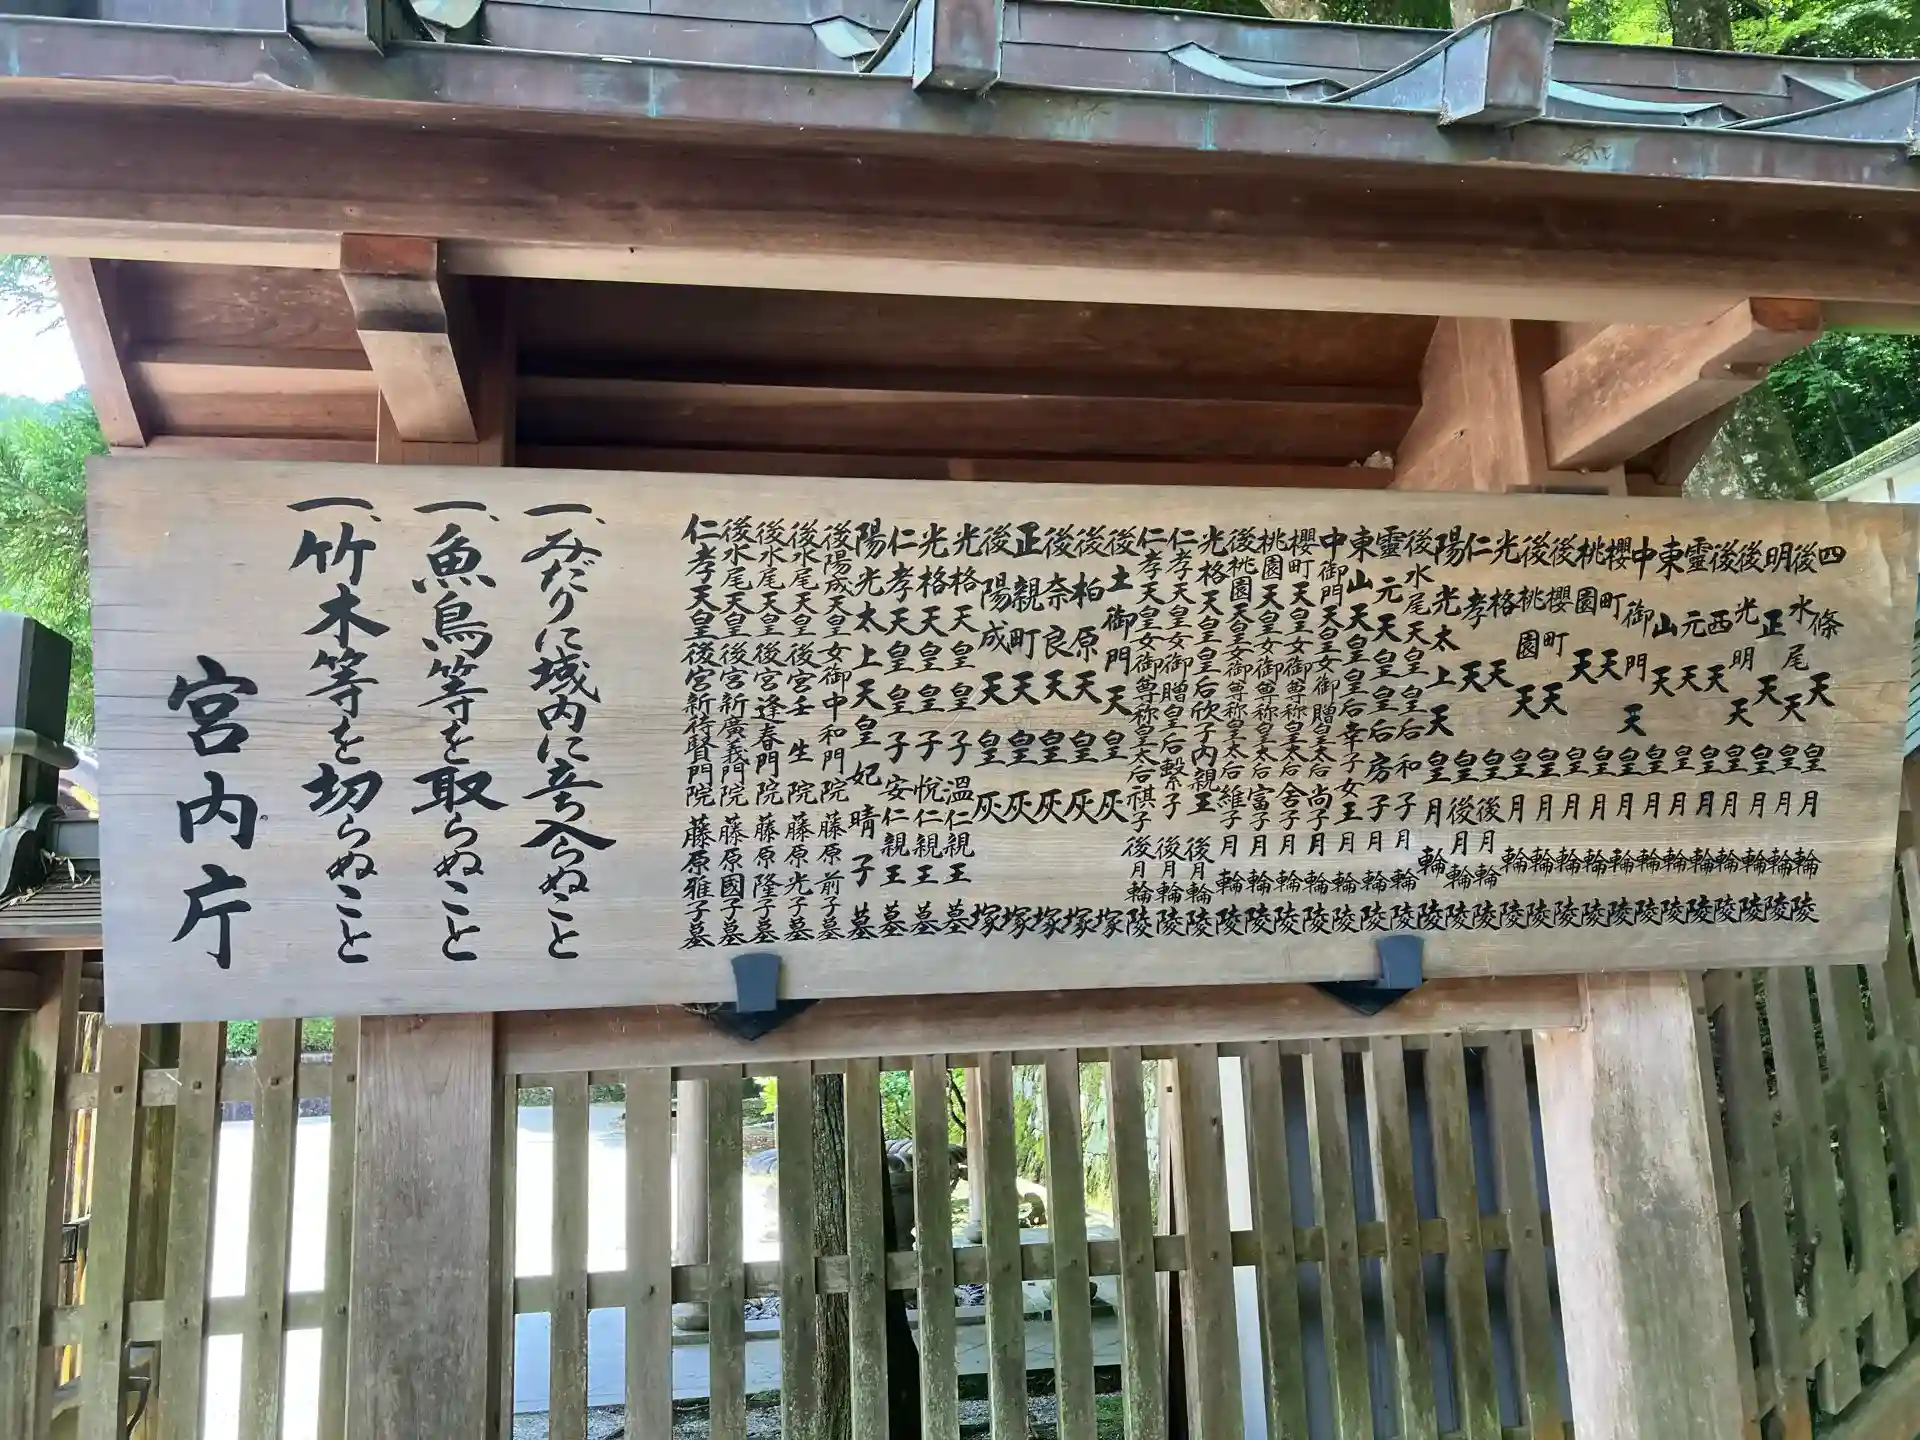 四條天皇月輪陵
後水尾天皇月輪陵
明正天皇月輪陵
後光明天皇月輪陵
後西天皇月輪陵
靈元天皇月輪陵
東山天皇月輪陵
中御門天皇月輪陵
櫻町天皇月輪陵
桃園天皇月輪陵
後櫻町天皇月輪陵
後桃園天皇月輪陵
光格天皇後月輪陵
仁孝天皇後月輪陵
陽光太上天皇月輪陵
後水尾天皇皇后和子月輪陵
靈元天皇皇后房子月輪陵
東山天皇皇后幸子女王月輪陵
中御門天皇女御贈皇太后尚子月輪陵
櫻町天皇女御尊称皇太后舍子月輪陵
桃園天皇女御尊称皇太后富子月輪陵
後桃園天皇女御尊称皇太后維子月輪陵
光格天皇皇后欣子内親王後月輪陵
仁孝天皇女御贈皇后繫子後月輪陵
仁孝天皇女御尊称皇太后祺子後月輪陵
後土御門天皇灰塚
後柏原天皇灰塚
後奈良天皇灰塚
正親町天皇灰塚
後陽成天皇灰塚
光格天皇皇子溫仁親王墓
光格天皇皇子悦仁親王墓
仁孝天皇皇子安仁親王墓
陽光太上天皇妃晴子墓
後陽成天皇女御中和門院藤原前子墓
後水尾天皇後宮壬生院藤原光子墓
後水尾天皇後宮逢春門院藤原隆子墓
後水尾天皇後宮新廣義門院藤原國子墓
仁孝天皇後宮新待賢門院藤原雅子墓
一、みだりに域内に立ち入らぬこと
一、魚鳥等を取らぬこと
一、竹木等を切らぬこと
宮内庁